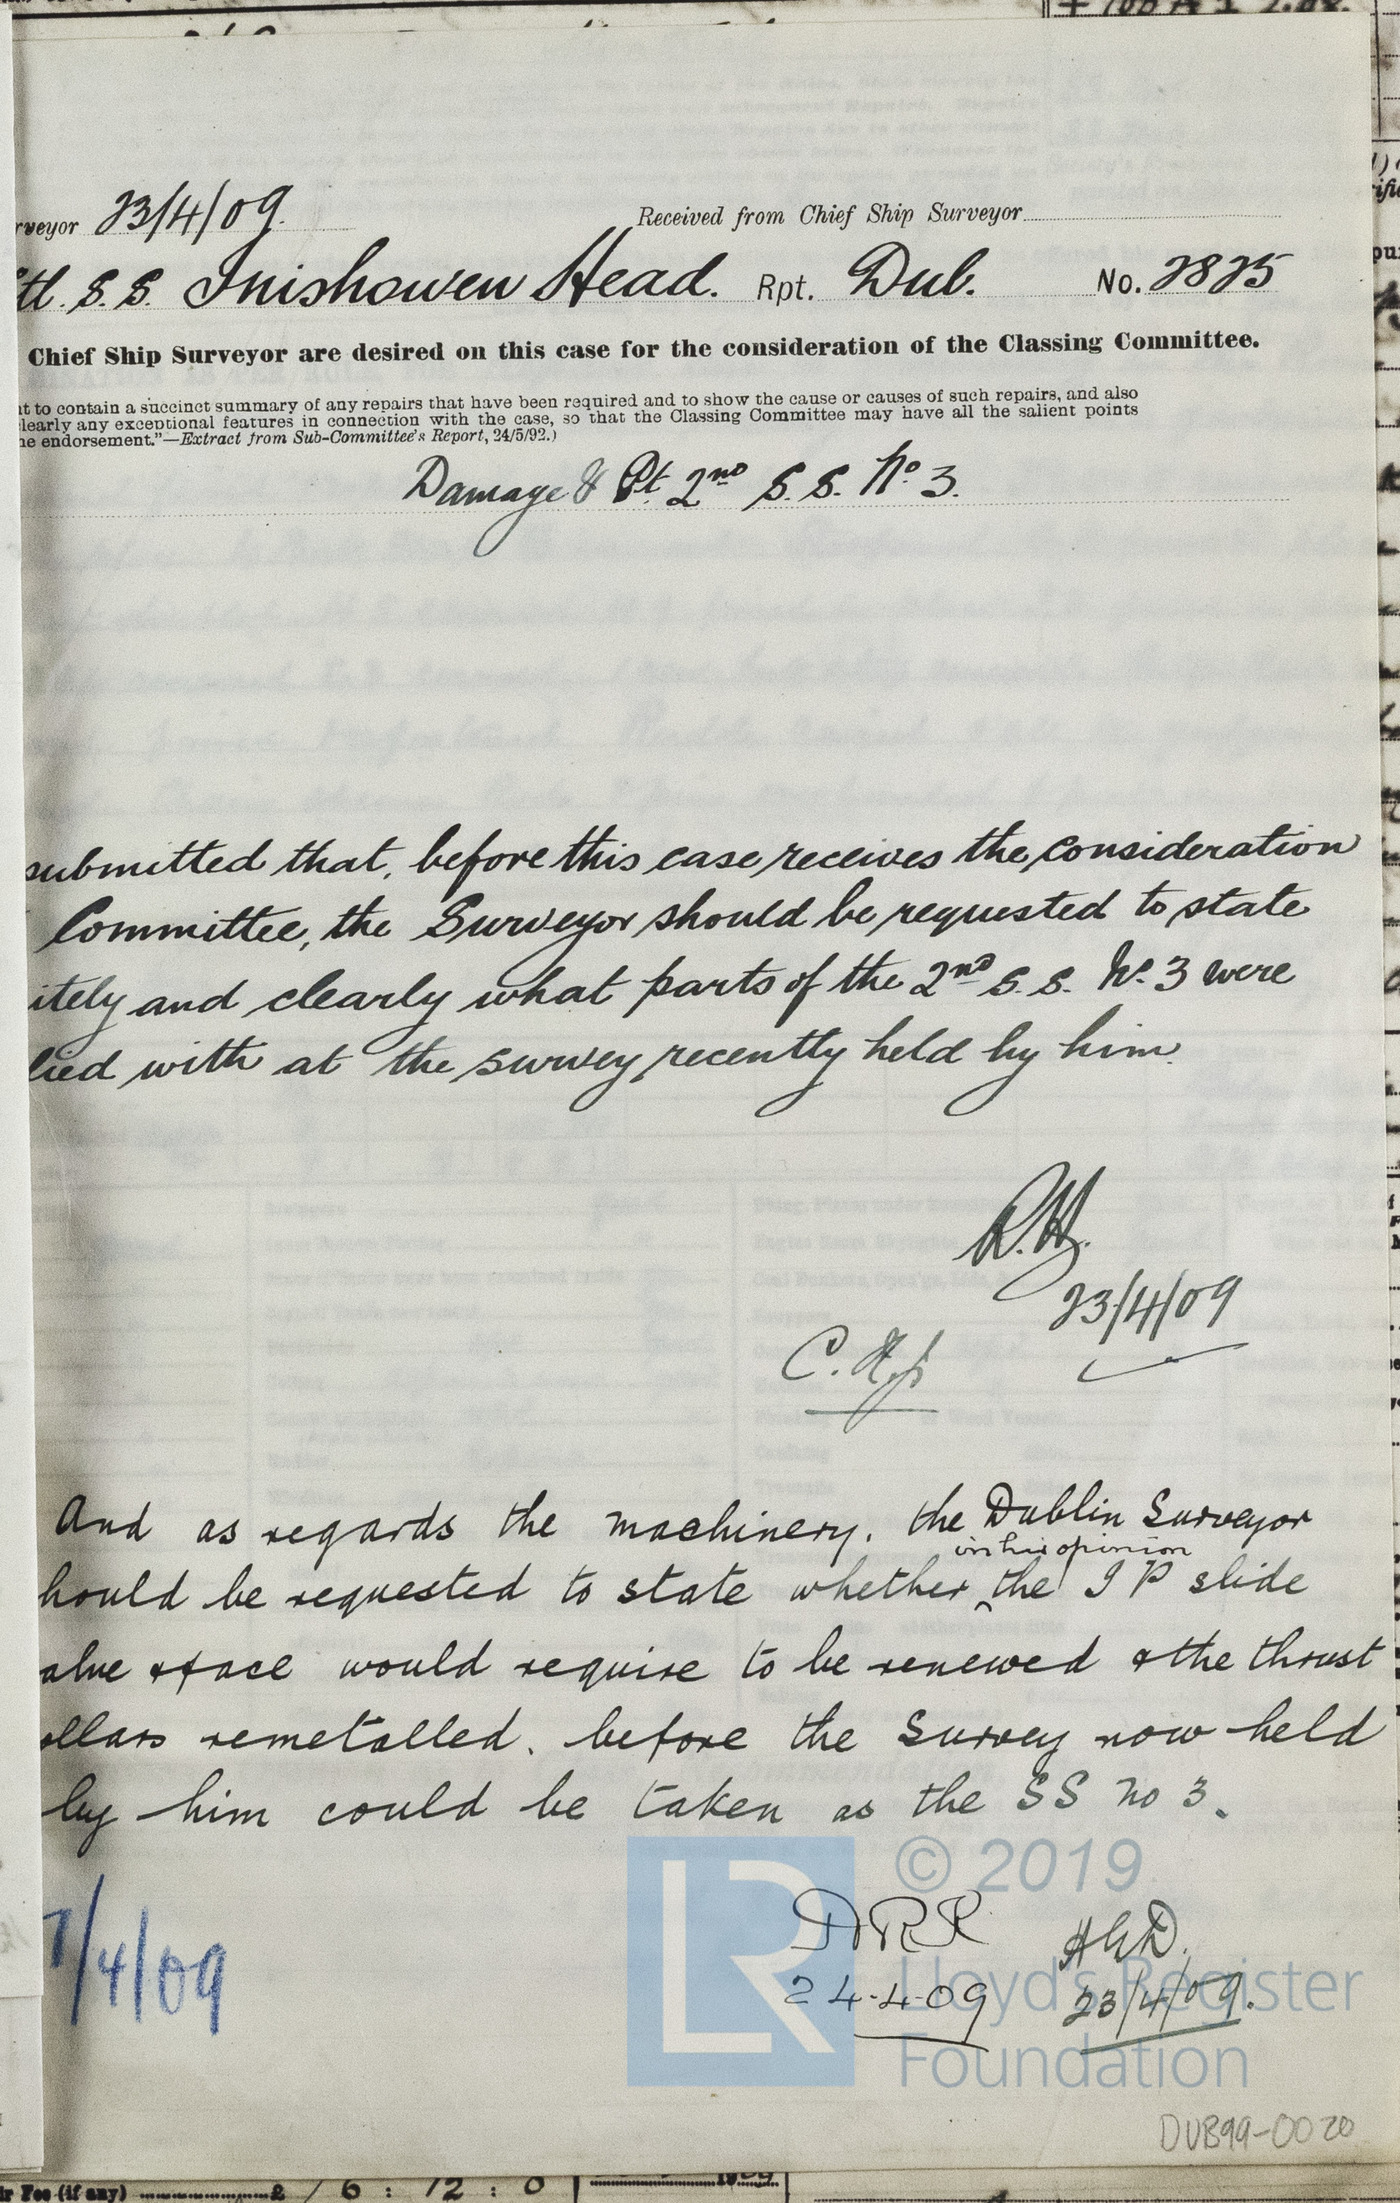 rveyor 23/4/09. Received from Chief Ship Surveyor
Stl. S.S. Inishowen Head. Rpt. Dub. No. 2825
Chief Ship Surveyor are desired on this case for the consideration of the Classing Committee.
nt to contain a succinct summary of any repairs that have been required and to show the cause or causes of such repairs, and also
learly any exceptional features in connection with the case, so that the Classing Committee may have all the salient points
he endorsement."—Extract from Sub-Committee's Report, 24/5/92.)
Damage & Pt. 2nd S.S. No. 3.
submitted that, before this case receives the consideration
Committee, the Surveyor should be requested to state
itely and clearly what parts of the 2nd S.S. No. 3 were
lied with at the survey recently held by him.
23/4/09
And as regards the machinery, the Dublin Surveyor
in his opinion
hould be requested to state whether ‸ the I P slide
alve & face would require to be renewed & the thrust
ollars remetalled, before the Survey now held
by him could be taken as the SS No 3.
7/4/09
24-4-09
H G D.
23/4/09.
LR © 2019
Lloyd's Register
Foundation
DUB99-0020
r Fee (if any) 2 / 6 : 12 : 0